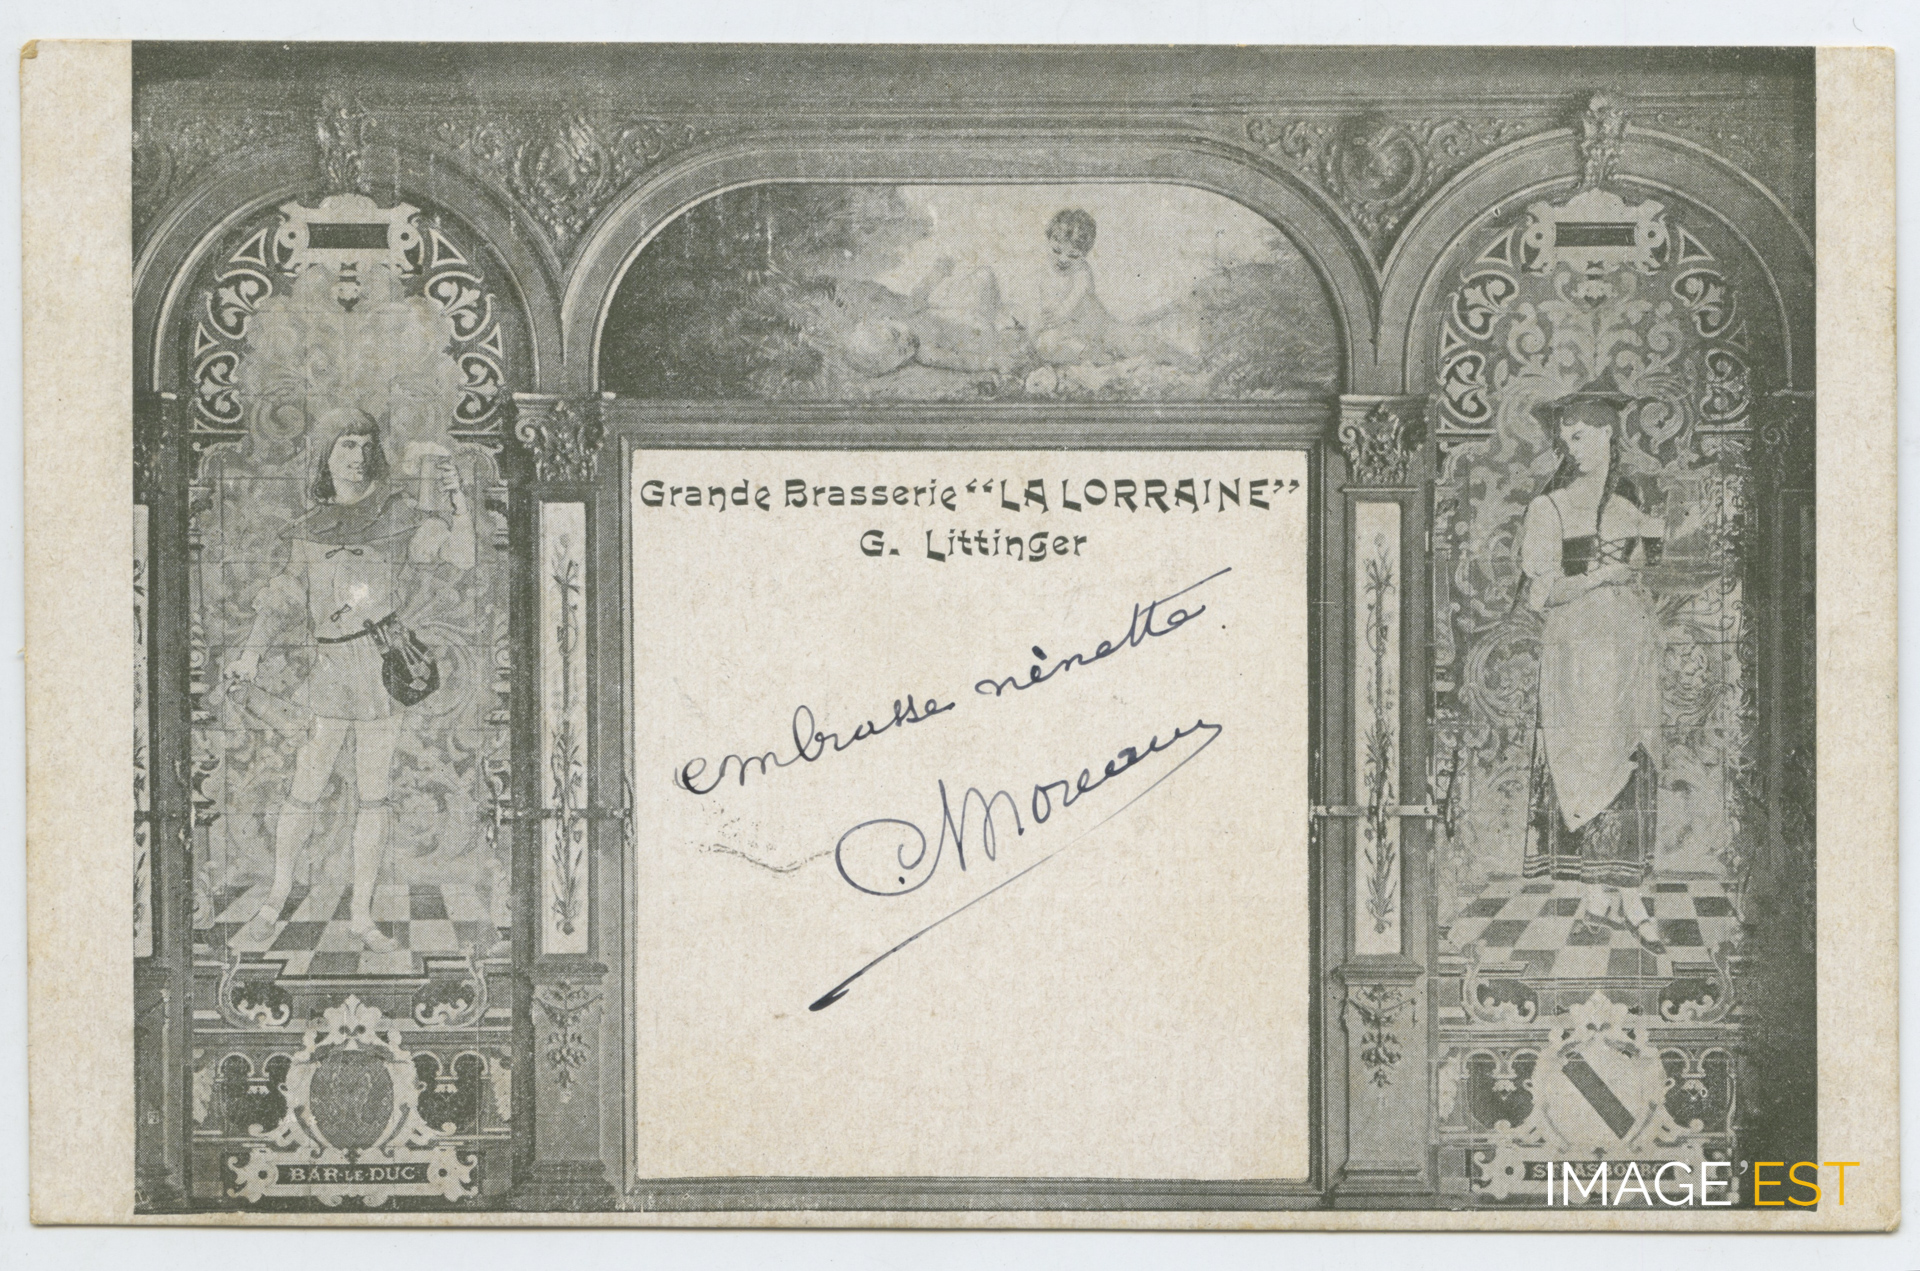 Grande Brasserie "LA LORRAINE"
G. Littinger
embrasse nènette.
Moreau
BAR-LE-DUC
STRASBOURG
IMAGE'EST